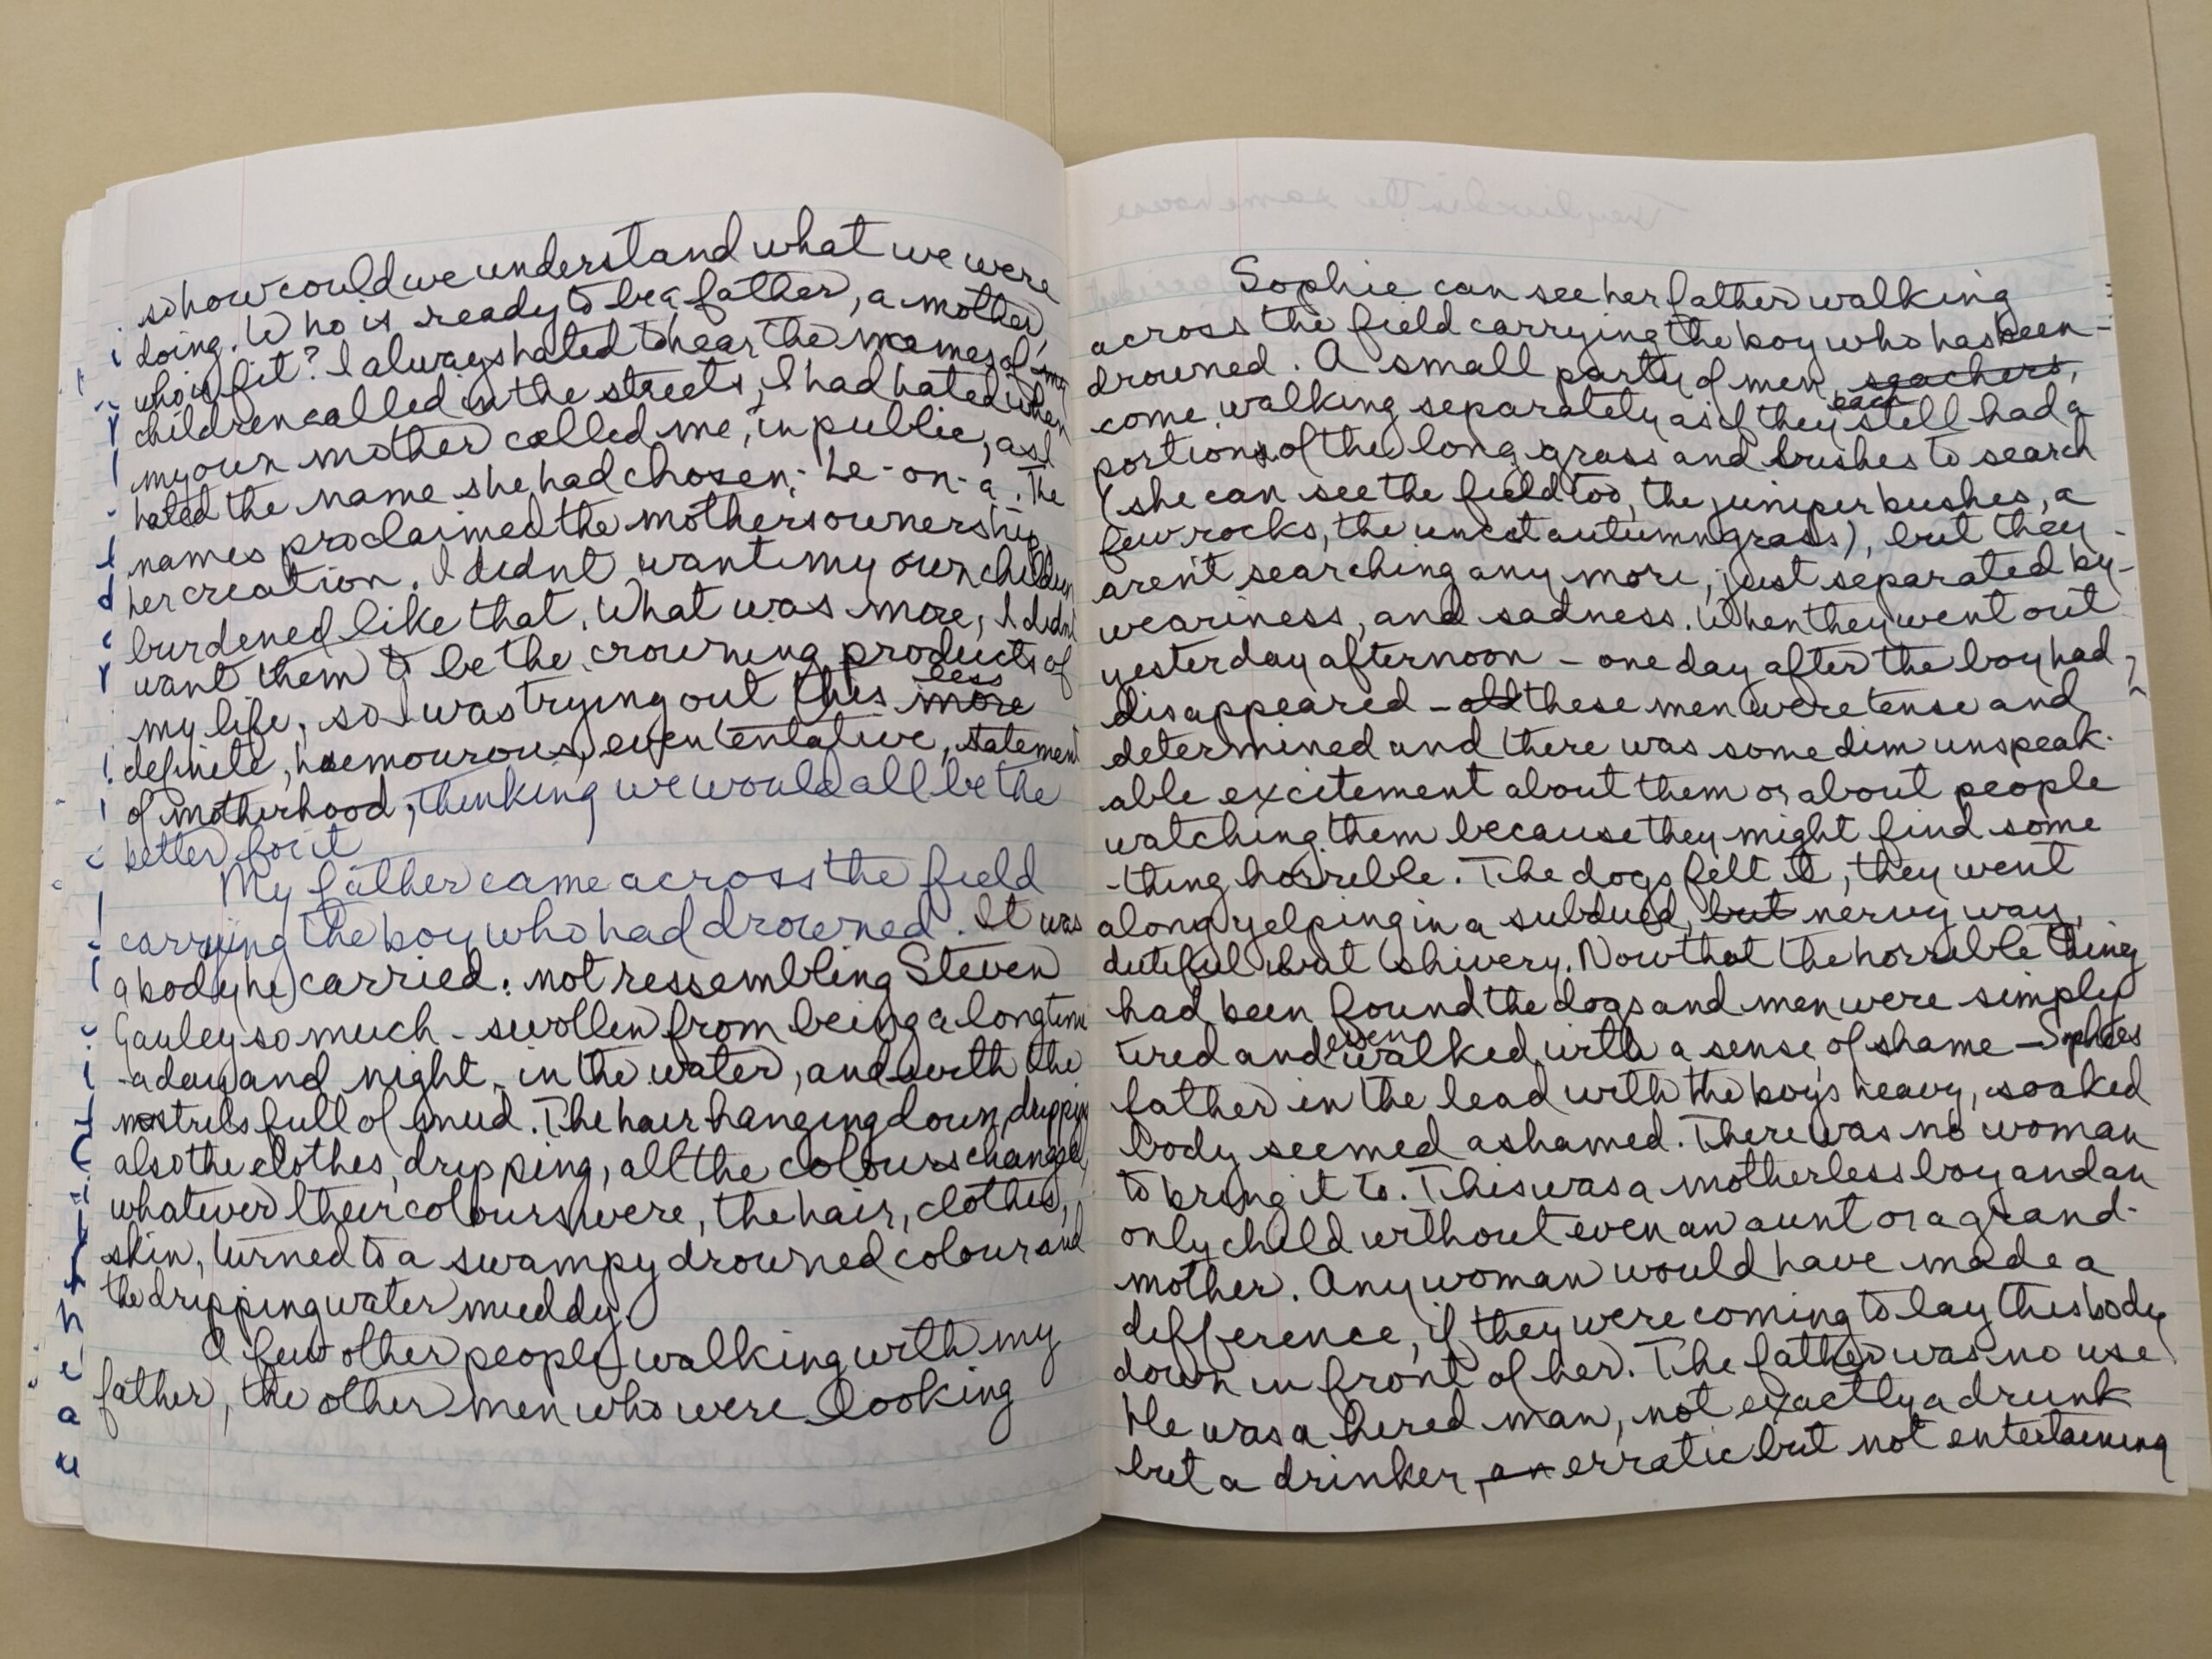 so how could we understand what we were
doing. Who is ready to be a father, a mother,
who is fit? I always hated to hear the names of my
children called in the streets, I had hated when
my own mother called me, in public, as I
hated the name she had chosen,- Le-on-a. The
names proclaimed the mothers ownership,
her creation. I didnt want my own children
burdened like that. What was more, I didnt
want them to be the crowning products of
my life, so I was trying out this more less
definite, humourous, even tentative, statement
of motherhood, thinking we would all be the
better for it
My father came across the field
carrying the boy who had drowned. It was
a body he carried: not ressembling Steven
Gauley so much - swollen from being a long time
- a day and night - in the water, and with the
nostrils full of mud. The hair hanging down, dripping
also the clothes, dripping, all the colours changed,
whatever their colours were, the hair, clothes,
skin, turned to a swampy drowned colour and
the dripping water muddy.
A few other people walking with my
father, the other men who were looking
Sophie can see her father walking
across the field carrying the boy who has been
drowned. A small party of men, seachers,
come, walking separately as if they each still had a
portion of the long grass and brushes to search
(she can see the field too, the juniper bushes, a
few rocks, the uncut autumn grass), but they
aren't searching any more, just separated by
weariness, and sadness. When they went out
yesterday afternoon - one day after the boy had
disappeared - all these men were tense and
determined and there was some dim unspeak-
able excitement about them or about people
watching them because they might find some
-thing horrible. The dogs felt it, they went
along yelping in a subdued, but nervy way,
dutiful but shivery. Now that the horrible thing
had been found the dogs and men were simply
tired and even walked with a sense of shame - Sophies
father in the lead with the boy's heavy, soaked
body seemed ashamed. There was no woman
to bring it to. This was a motherless boy and an
only child without even an aunt or a grand-
mother. Any woman would have made a
difference, if they were coming to lay this body
down in front of her. The father was no use
He was a hired man, not exactly a drunk
but a drinker, an erratic but not entertaining